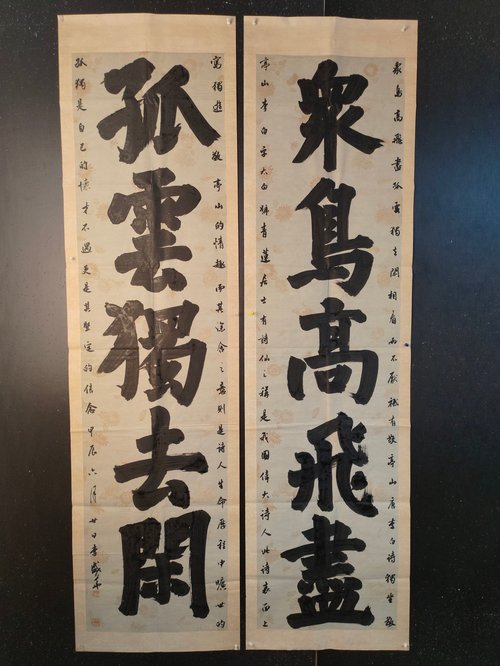 衆鳥高飛盡
衆鳥高飛盡孤雲獨去閑相看兩不厭祗有敬亭山唐李白詩獨坐敬
亭山李白字太白號青蓮居士有詩仙之稱是我國偉大詩人此詩表面上
孤雲獨去閑
寫獨遊敬亭山的情趣而其深含之意則是詩人生命歷程中曠世的
孤獨是自己的懷才不遇更是其堅定的信念甲辰六月廿日李盛